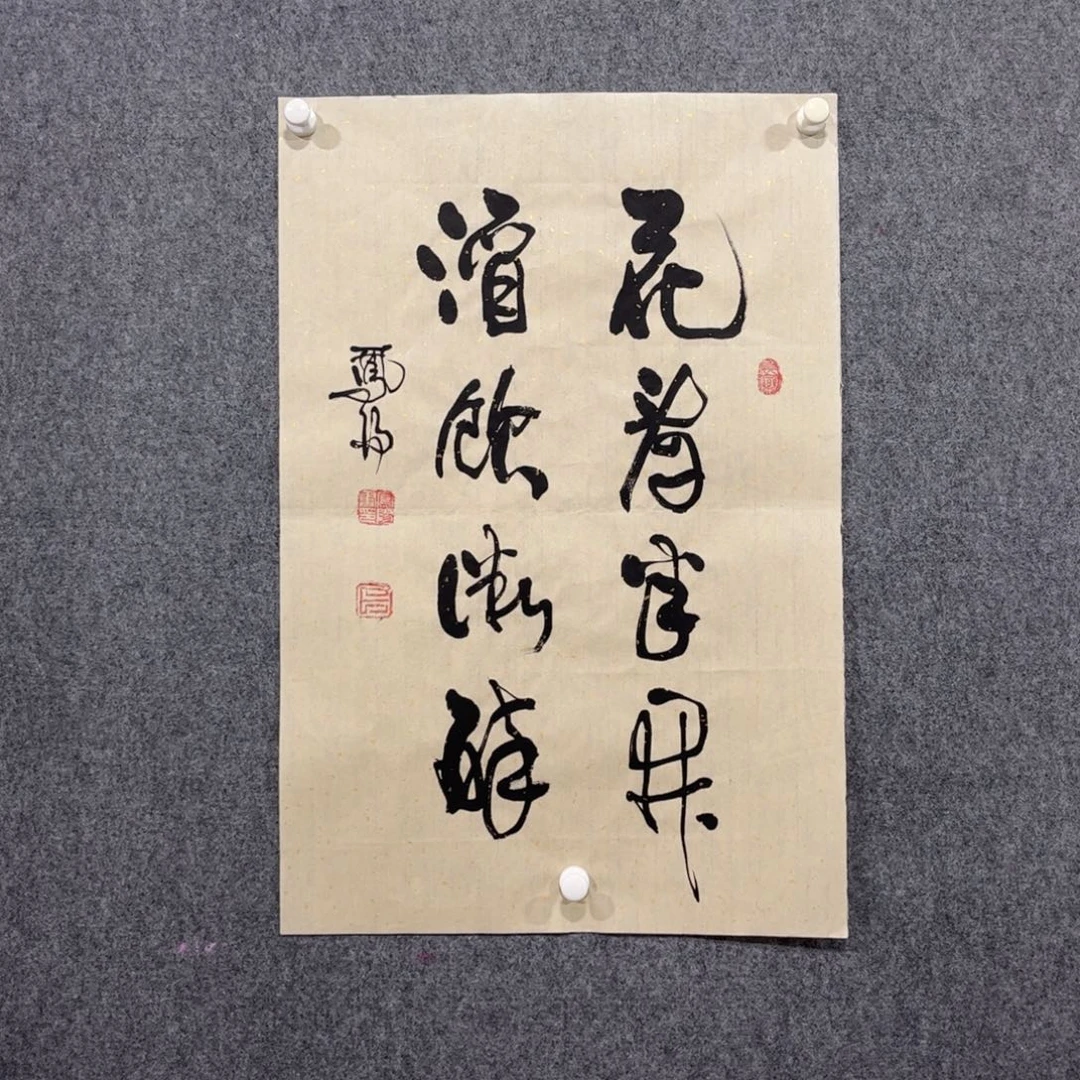 花看半開
酒飲微醉